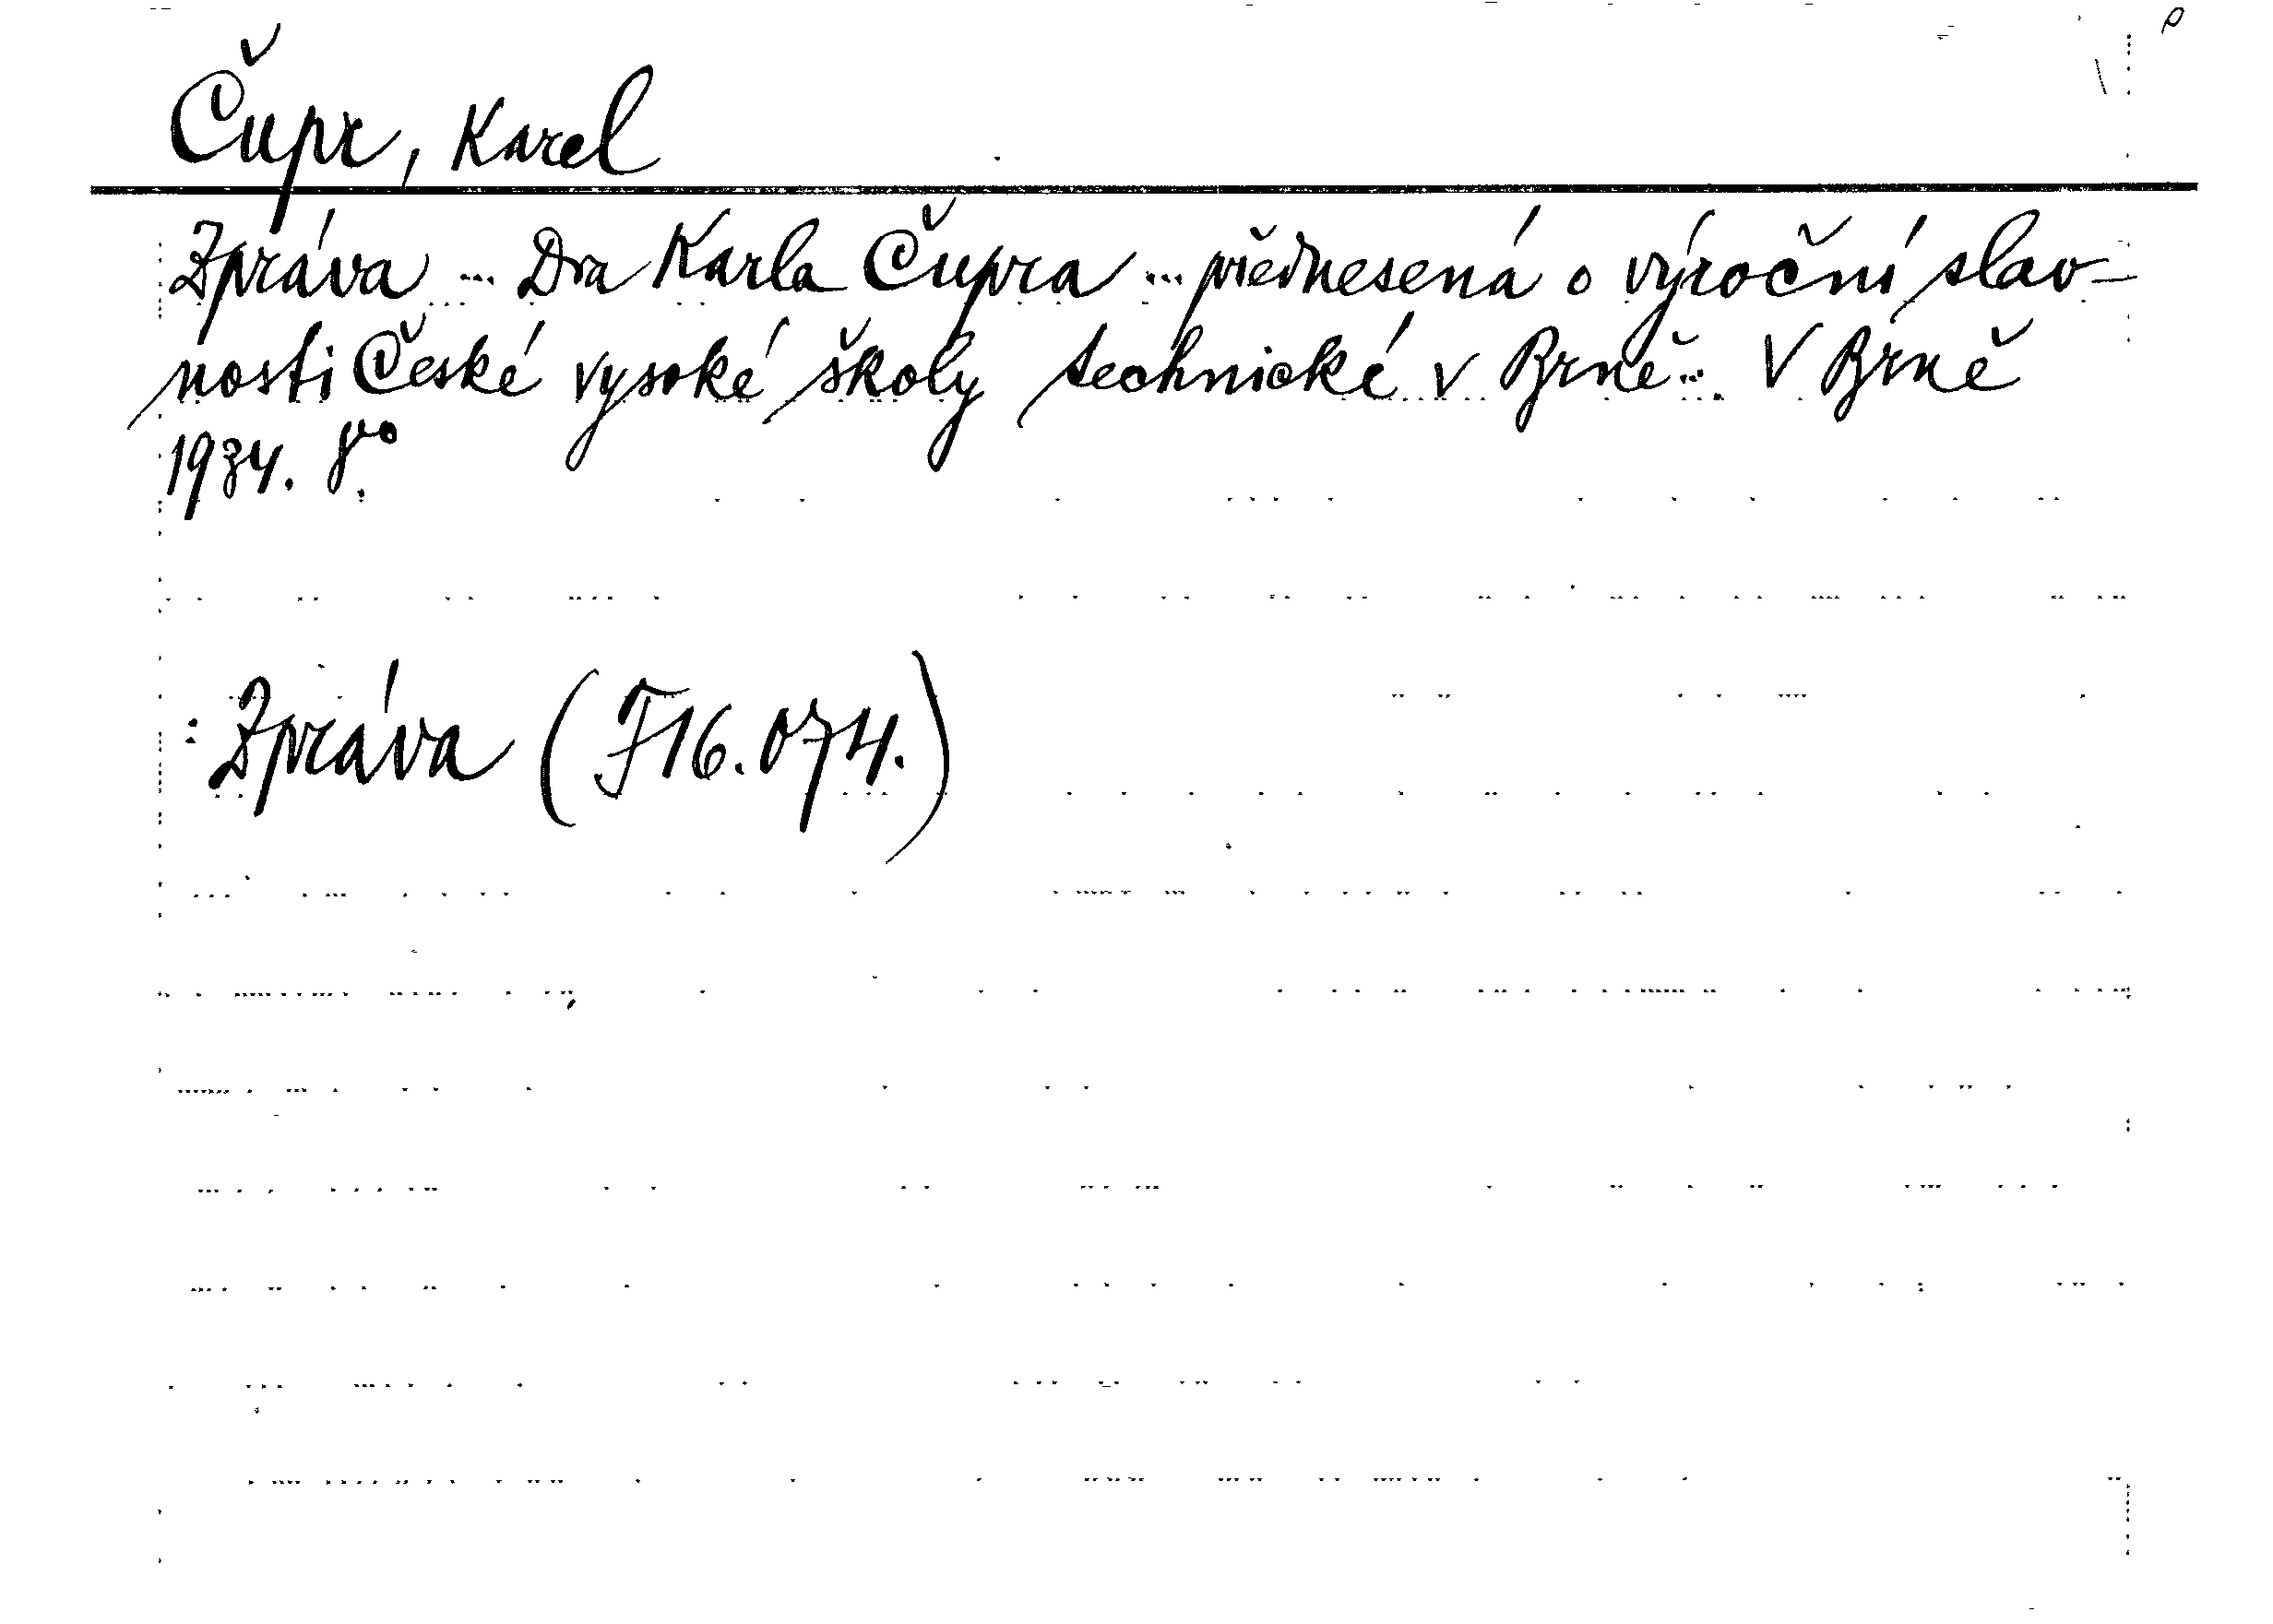 Čupr, Karel
Zpráva ... Dra Karla Čupra ... přednesená o výroční slav-
nosti České vysoké školy technické v Brně... V Brně
1934. 8vo.
: Zpráva (F16.074.)